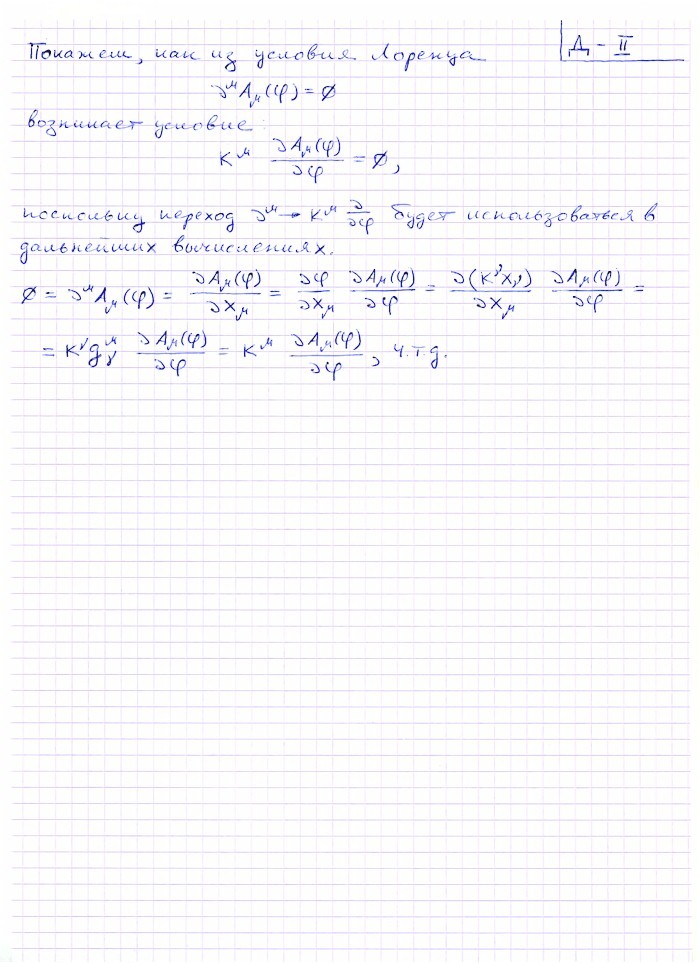 Д - II
Покажем, как из условия Лоренца
∂^μ A_μ(φ) = 0
возникает условие:
K^μ ∂A_μ(φ)/∂φ = 0,
поскольку переход ∂^μ → K^μ ∂/∂φ будет использоваться в
дальнейших вычислениях.
0 = ∂^μ A_μ(φ) = ∂A_μ(φ)/∂x_μ = ∂φ/∂x_μ ∂A_μ(φ)/∂φ = ∂(K^ν x_ν)/∂x_μ ∂A_μ(φ)/∂φ =
= K^ν g_ν^μ ∂A_μ(φ)/∂φ = K^μ ∂A_μ(φ)/∂φ, ч.т.д.